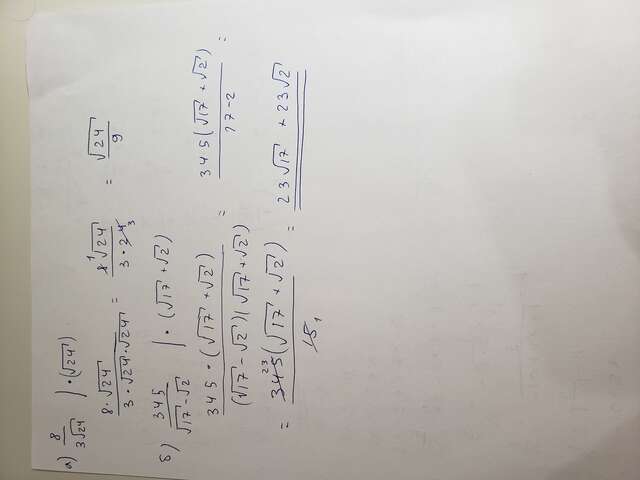 а) 8/(3√24) | · (√24)
(8 · √24)/(3 · √24 · √24) = (8¹ √24)/(3 · 24₃) = √24/9
б) 345/(√17 - √2) | · (√17 + √2)
(345 · (√17 + √2))/((√17 - √2)(√17 + √2)) = (345(√17 + √2))/(17 - 2) =
= (345²³(√17 + √2))/15₁ = 23√17 + 23√2